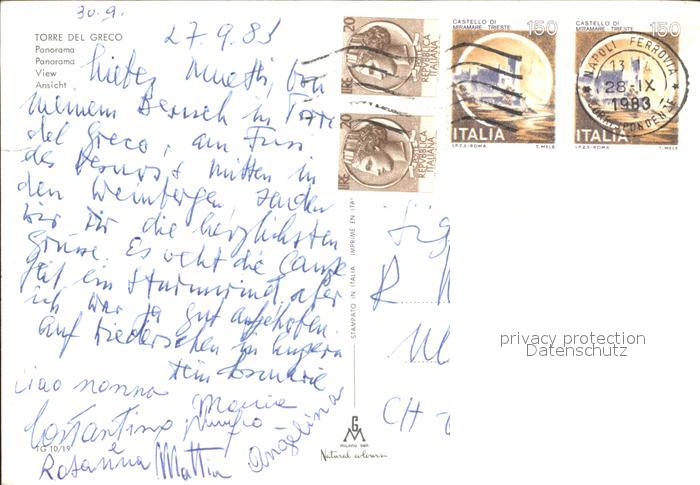 30.9.
27.9.83
TORRE DEL GRECO
Panorama
Panorama
View
Ansicht
Liebes Muetti, von
meinem Besuch in Torre
del Greco, am Fuss
des Vesuvs & mitten in
den Weinbergen senden
wir Dir die herzlichsten
Grüsse. Es weht die ganze
Zeit ein Sturmwind, aber
ich war ja gut aufgehoben.
Auf Wiedersehen in
Dein
Ciao nonna
Maria
Costantino
e
Rosanna Mattia Angelina
TG 10/19
LIRE 20
REPUBBLICA ITALIANA
LIRE 20
REPUBBLICA ITALIANA
CASTELLO DI
MIRAMARE TRIESTE
150
ITALIA
I.P.Z.S.-ROMA
T. MELE
CASTELLO DI
MIRAMARE TRIESTE
150
ITALIA
I.P.Z.S.-ROMA
T. MELE
NAPOLI FERROVIA
28-IX
1983
CORRISPONDENZE
STAMPATO IN ITALIA IMPRIMÉ EN ITA
R
CH
GM
Natural colours
privacy protection
Datenschutz